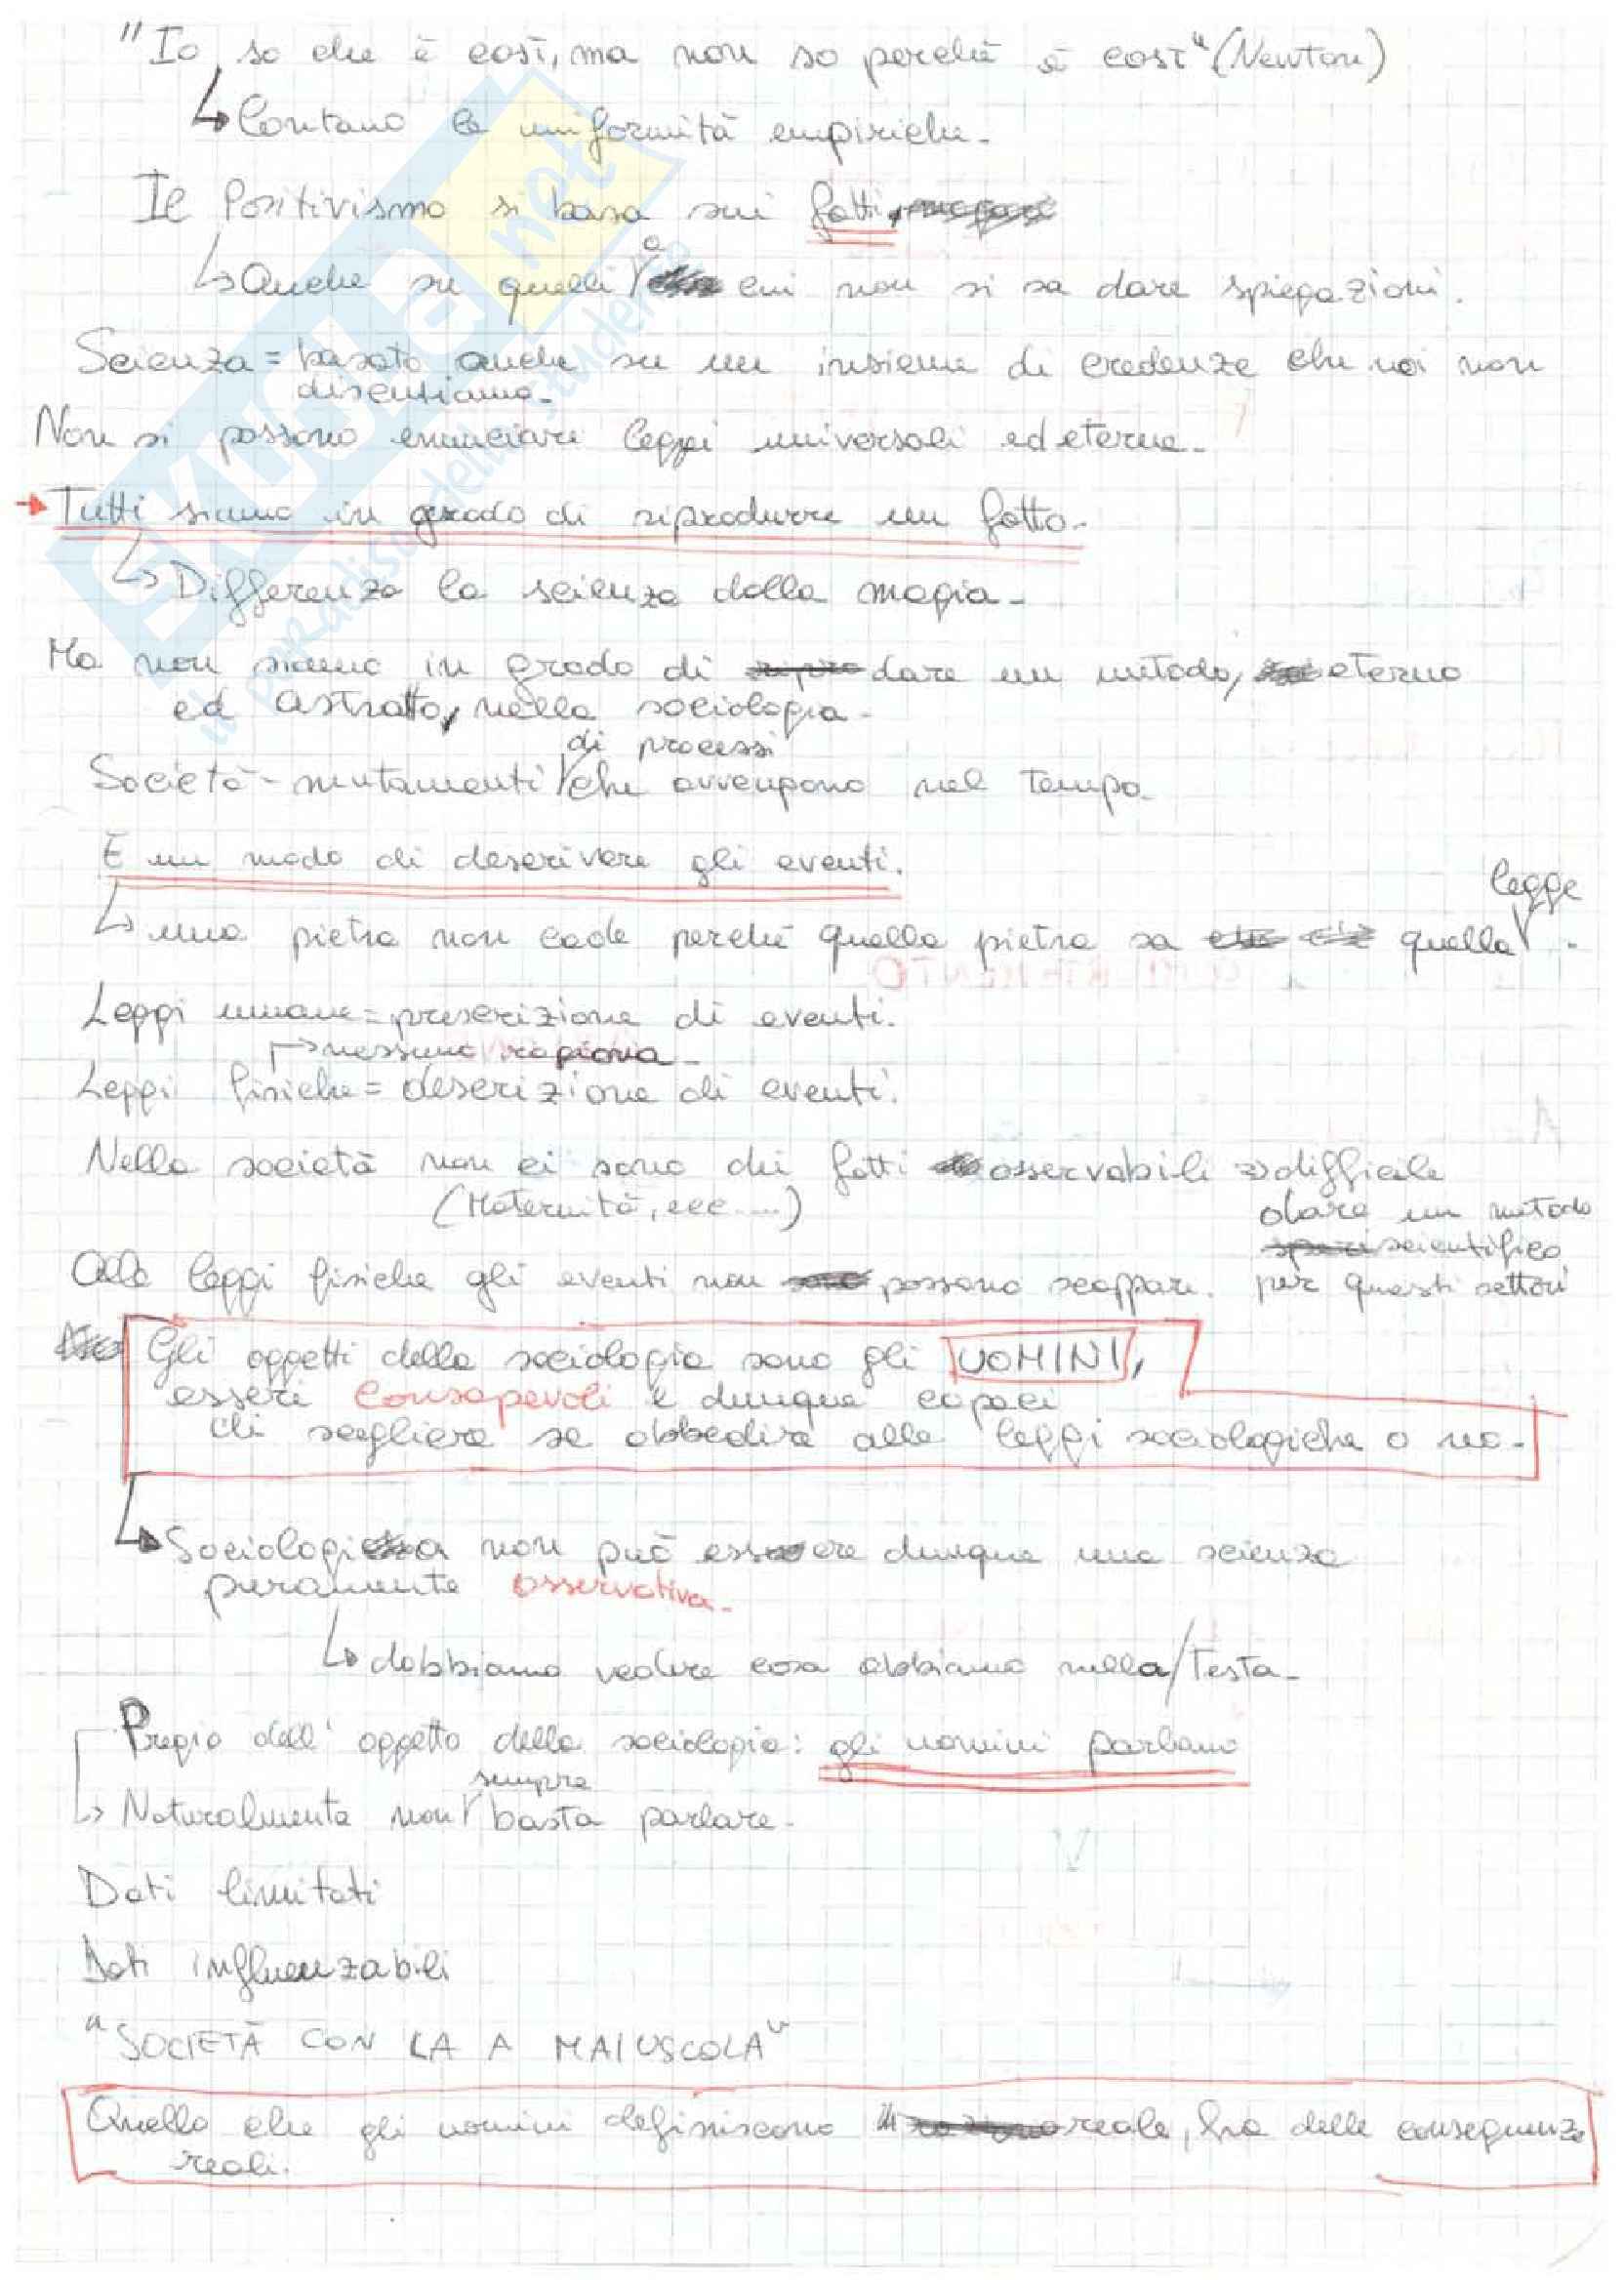 "Io so che è così, ma non so perché è così" (Newton)
↳ Contano le uniformità empiriche.
Il Positivismo si basa sui fatti
↳ Anche su quelli a cui non si sa dare spiegazioni.
Scienza = basata anche su un insieme di credenze che noi non
discutiamo.
Non si possono enunciare leggi universali ed eterne.
→ Tutti siamo in grado di riprodurre un fatto.
↳ Differenza la scienza dalla magia.
Ma non siamo in grado di dare un metodo, eterno
ed astratto, nella sociologia.
Società - mutamenti di processi che avvengono nel tempo.
È un modo di descrivere gli eventi.
↳ una pietra non cade perché quella pietra sa quella legge.
Leggi umane = prescrizione di eventi.
↱ nessuno ragiona.
Leggi fisiche = descrizione di eventi.
Nella società non ci sono dei fatti osservabili => difficile
(Maternità, ecc....) dare un metodo
scientifico
Alle leggi fisiche gli eventi non possono scappare. per questi settori
Gli oggetti della sociologia sono gli UOMINI,
esseri consapevoli e dunque capaci
di scegliere se obbedire alle leggi sociologiche o no.
↳ Sociologia non può essere dunque una scienza
puramente osservativa.
↳ dobbiamo vedere cosa abbiamo nella testa.
Pregio dell'oggetto della sociologia: gli uomini parlano
↳ Naturalmente non sempre basta parlare.
Dati limitati
Dati influenzabili
"SOCIETÀ CON LA A MAIUSCOLA"
Quello che gli uomini definiscono reale, ha delle conseguenze
reali.
SKUOLA.net
il paradiso dello studente